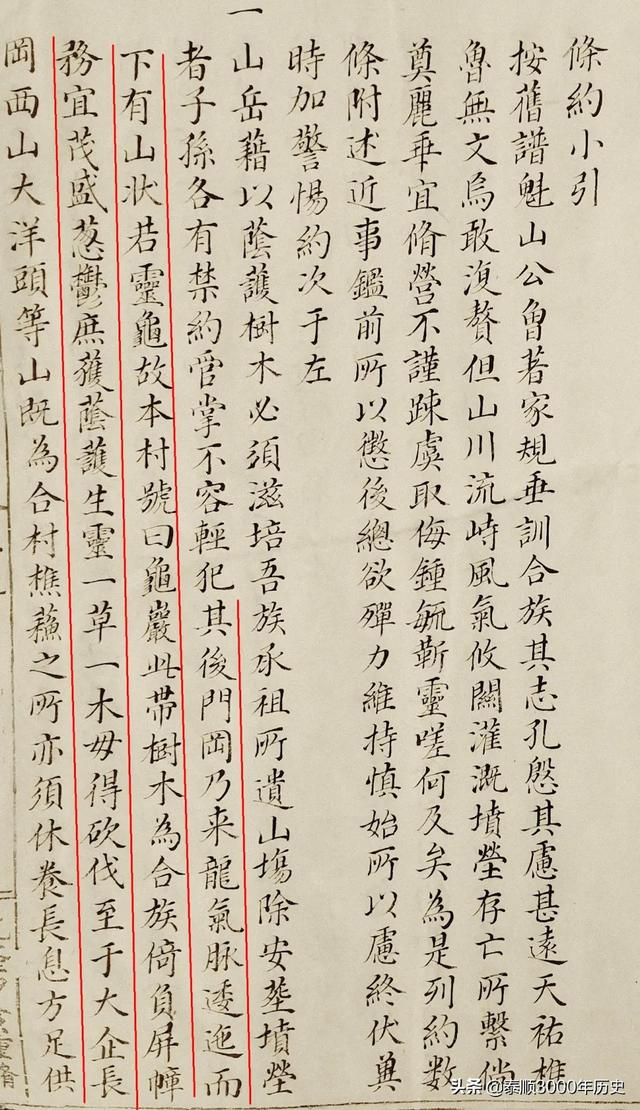 條約小引
按舊譜魁山公曾著家規垂訓合族其志孔慇其慮甚遠天祐樵
魯無文烏敢復贅但山川流峙風氣攸關灌溉墳塋存亡所繫倘
奠麗乖宜脩營不謹踈虞取侮鍾毓靳靈嗟何及矣為是列約數
條附述近事鑑前所以懲後總欲殫力維持慎始所以慮終伏冀
時加警惕約次于左
一
山岳藉以蔭護樹木必須滋培吾族承祖所遺山塲除安塟墳塋
者子孫各有禁約管掌不容輕犯其後門岡乃来龍氣脉逶迤而
下有山狀若靈龜故本村號曰龜巖此帶樹木為合族倚負屏幛
務宜茂盛葱鬱庶獲蔭護生靈一草一木毋得砍伐至于大企長
岡西山大洋頭等山既為合村樵蘓之所亦須休養長息方足供
头条 @泰顺3000年历史